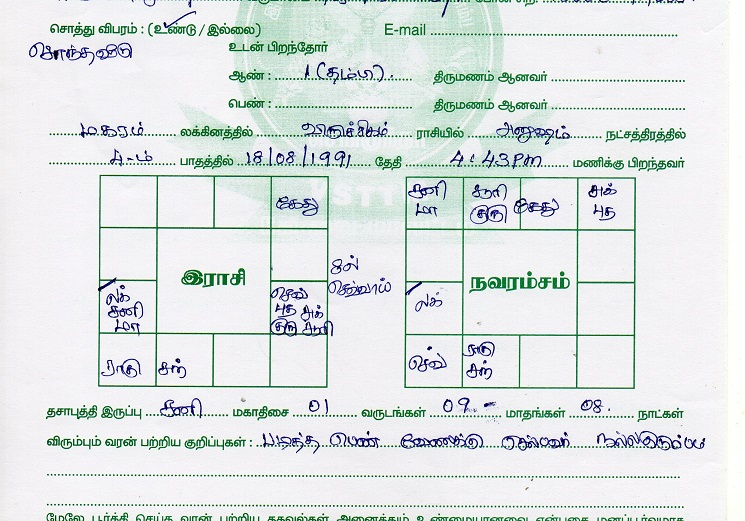 சொத்து விபரம் : (உண்டு / இல்லை) E-mail
சொந்தவீடு உடன் பிறந்தோர்
ஆண் : 1 (தம்பி). திருமணம் ஆனவர் :
பெண் : திருமணம் ஆனவர் :
மகரம் லக்கினத்தில் விருச்சிகம் ராசியில் அனுஷம் நட்சத்திரத்தில்
4-ம் பாதத்தில் 18/08/1991 தேதி 4:43 PM மணிக்கு பிறந்தவர்
கேது
இராசி
லக்
சனி
மா
செவ்
புத சுக்
குரு சூரி
ராகு சந்
செவ்வாய்
சனி
மா
சூரி
குரு
கேது
சுக்
புத
நவரம்சம்
லக்
செவ்
ராகு
சந்
தசாபுத்தி இருப்பு சனி மகாதிசை 01 வருடங்கள் 09 மாதங்கள் 08. நாட்கள்
விரும்பும் வரன் பற்றிய குறிப்புகள் : படித்த பெண்
மேலே பூர்த்தி செய்த வரன் பற்றிய தகவல்கள் அனைத்தும் உண்மையானவை என்பதை மனப்பூர்வமாக